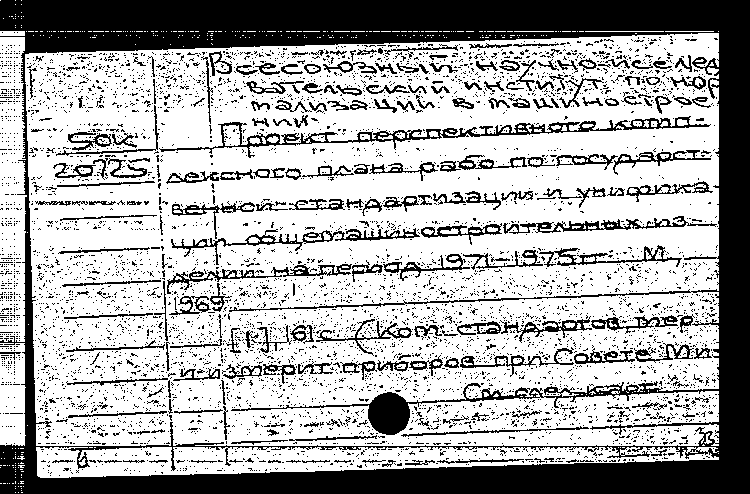 Всесоюзный научно-исслед
вательский институт по нор
мализации в машинострое
нии.
50к Проект перспективного комп-
20725 лексного плана рабо по государст-
венной стандартизации и унифика-
ции общемашиностроительных из-
делий на период 1971-1975 гг. М.,
1969
[1], 161 с (Ком. стандартов, мер
и измерит приборов при Совете Ми-
См след. карт